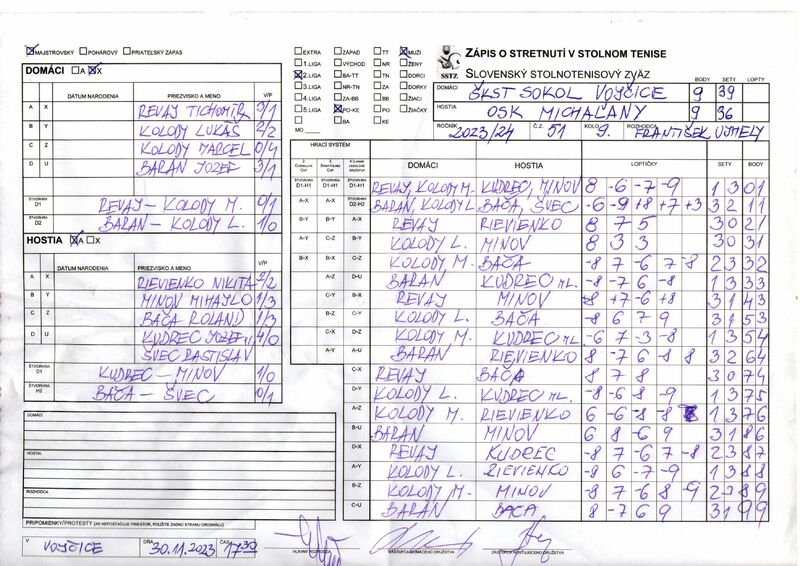 MAJSTROVSKÝ POHÁROVÝ PRIATEĽSKÝ ZÁPAS
DOMÁCI A X
DÁTUM NARODENIA PRIEZVISKO A MENO V/P
A X REVAY TICHOMÍR 3/1
B Y KOLODY LUKÁŠ 2/2
C Z KOLODY MARCEL 0/4
D U BARAN JOZEF 3/1
ŠTVORHRA D1 REVAY – KOLODY M. 0/1
ŠTVORHRA D2 BARAN – KOLODY L. 1/0
HOSTIA A X
DÁTUM NARODENIA PRIEZVISKO A MENO V/P
A X RIEVIENKO NIKITA 2/2
B Y MINOV MIHAYLO 1/3
C Z BAČA ROLAND 1/3
D U KUDREC JOZEF 4/0
ŠVEC RASTISLAV
ŠTVORHRA KUDREC – MINOV 1/0
ŠTVORHRA H2 BAČA – ŠVEC 0/1
DOMÁCI
HOSTIA
ROZHODCA
PRIPOMIENKY/PROTESTY (AK NEPOSTAČUJE PRIESTOR, POUŽITE ZADNÚ STRANU ORIGINÁLU)
V VOJČICE DŇA 30.11.2023 ČAS 17:30
HLAVNÝ ROZHODCA ZÁSTUPCA DOMÁCEHO DRUŽSTVA ZÁSTUPCA HOSŤUJÚCEHO DRUŽSTVA
EXTRA ZÁPAD TT MUŽI
1.LIGA VÝCHOD NR ŽENY
2.LIGA BA-TT TN DORCI
3.LIGA NR-TN ZA DORKY
4.LIGA ZA-BB BB ŽIACI
5.LIGA PO-KE PO ŽIAČKY
MO BA KE
ZÁPIS O STRETNUTÍ V STOLNOM TENISE
SSTZ SLOVENSKÝ STOLNOTENISOVÝ ZVÄZ
BODY SETY LOPTY
DOMÁCI ŠKST SOKOL VOJČICE 9 39
HOSTIA OSK MICHAĽANY 9 36
ROČNÍK 2023/24 Č.Z. 51 KOLO 9. ROZHODCA FRANTIŠEK UJHELY
HRACÍ SYSTÉM
DOMÁCI HOSTIA LOPTIČKY SETY BODY
ŠTVORHRA D1-H1 ŠTVORHRA D1-H1 ŠTVORHRA D1-H1 REVAY, KOLODY M. KUDREC, MINOV 8 -6 -7 -9 1 3 0 1
A-X A-X ŠTVORHRA D2-H2 BARAN, KOLODY L. BAČA, ŠVEC -6 -9 +8 +7 +3 3 2 1 1
B-Y B-Y A-X REVAY RIEVIENKO 8 7 5 3 0 2 1
A-Y C-Z B-Y KOLODY L. MINOV 8 3 3 3 0 3 1
B-X B-X C-Z KOLODY M. BAČA -8 7 -6 7 -8 2 3 3 2
A-Z D-U BARAN KUDREC ML. -8 -7 6 -8 1 3 3 3
C-Y B-X REVAY MINOV +8 +7 -6 +8 3 1 4 3
B-Z C-Y KOLODY L. BAČA -8 6 7 9 3 1 5 3
C-X D-Z KOLODY M. KUDREC ML. -6 7 -3 -8 1 3 5 4
A-Y A-U BARAN RIEVIENKO 8 -7 6 -8 8 3 2 6 4
C-X REVAY BAČA 8 7 8 3 0 7 4
D-Y KOLODY L. KUDREC ML. -8 -6 8 -9 1 3 7 5
A-Z KOLODY M. RIEVIENKO 6 -6 -8 -8 1 3 7 6
B-U BARAN MINOV 6 8 -6 9 3 1 8 6
D-X REVAY KUDREC -8 7 -6 7 -8 2 3 8 7
A-Y KOLODY L. RIEVIENKO -8 6 -7 -9 1 3 8 8
B-Z KOLODY M. MINOV -8 7 -6 8 -9 2 3 8 9
C-U BARAN BAČA 8 -7 6 9 3 1 9 9